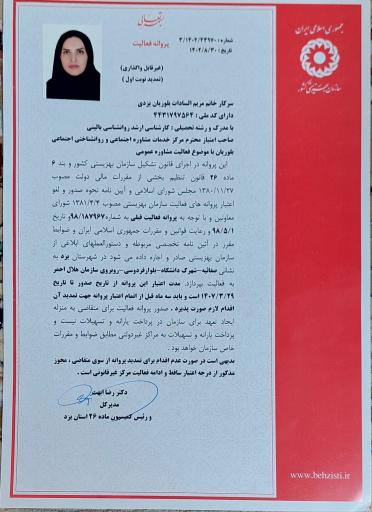 بسمه تعالی
جمهوری اسلامی ایران
سازمان بهزیستی کشور
شماره : ۳/۱۴۰۲/۴۳۹۷۰
تاریخ : ۱۴۰۲/۸/۳۰
پروانه فعالیت
(غیرقابل واگذاری)
(تمدید نوبت اول )
سرکار خانم مریم السادات بلوریان یزدی
دارای کد ملی : ۴۴۳۱۷۹۷۵۶۴
با مدرک و رشته تحصیلی : کارشناسی ارشد روانشناسی بالینی
صاحب امتیاز محترم مرکز خدمات مشاوره و روانشناختی اجتماعی
بلوریان با موضوع فعالیت مشاوره عمومی
این پروانه در اجرای قانون تشکیل سازمان بهزیستی کشور و بند ۶
ماده ۲۶ قانون تنظیم بخشی از مقررات مالی دولت مصوب
۱۳۸۰/۱۱/۲۷ مجلس شورای اسلامی و آیین نامه نحوه صدور و لغو
اعتبار پروانه های فعالیت سازمان بهزیستی مصوب ۱۳۸۱/۴/۴ شورای
معاونین و با توجه به پروانه فعالیت قبلی به شماره ۹۸/۱۸۷۹۶۷ تاریخ
۹۸/۵/۱ و رعایت قوانین و مقررات جمهوری اسلامی ایران و ضوابط
مقرر در آئین نامه تخصصی مربوطه و دستورالعملهای ابلاغی از
سازمان بهزیستی صادر و اجازه داده می شود در شهرستان یزد به
نشانی صفائیه-شهرک دانشگاه-بلوارفردوسی-روبروی سازمان هلال احمر
به فعالیت بپردازد. مدت اعتبار این پروانه از تاریخ صدور تا تاریخ
۱۴۰۷/۳/۲۹ است و باید سه ماه قبل از اتمام اعتبار پروانه جهت تمدید آن
اقدام لازم صورت پذیرد . صدور پروانه فعالیت برای متقاضی به منزله
ایجاد تعهد برای سازمان در پرداخت یارانه و تسهیلات نیست و
پرداخت یارانه و تسهیلات به مراکز غیردولتی مطابق ضوابط و مقررات
خاص سازمان خواهد بود .
بدیهی است در صورت عدم اقدام برای تمدید پروانه از سوی متقاضی ، مجوز
مذکور از درجه اعتبار ساقط و ادامه فعالیت مرکز غیرقانونی است .
دکتر رضا ابهت
مدیرکل
و رئیس کمیسیون ماده ۲۶ استان یزد
www.behzisti.ir